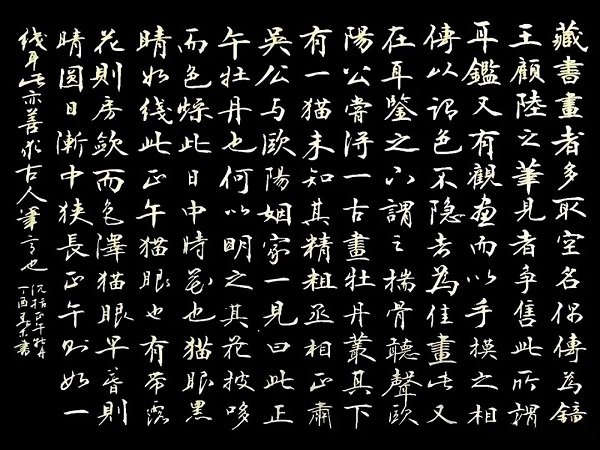 藏書畫者多取空名偶傳為鍾
王顧陸之筆見者爭售此所謂
耳鑑又有觀畫而以手摸之相
傳以谓色不隐者為佳畫此又
在耳鑒之下謂之揣骨聽聲歐
陽公嘗得一古畫牡丹叢其下
有一猫未知其精粗丞相正肅
吳公与歐陽姻家一見曰此正
午牡丹也何以明之其花披哆
而色燥此日中時花也猫眼黑
睛如线此正午猫眼也有带露
花則房歛而色澤猫眼早暮則
睛圆日漸中狹長正午则如一
线耳此亦善求古人筆意也
沈括正午牡丹
丁酉書